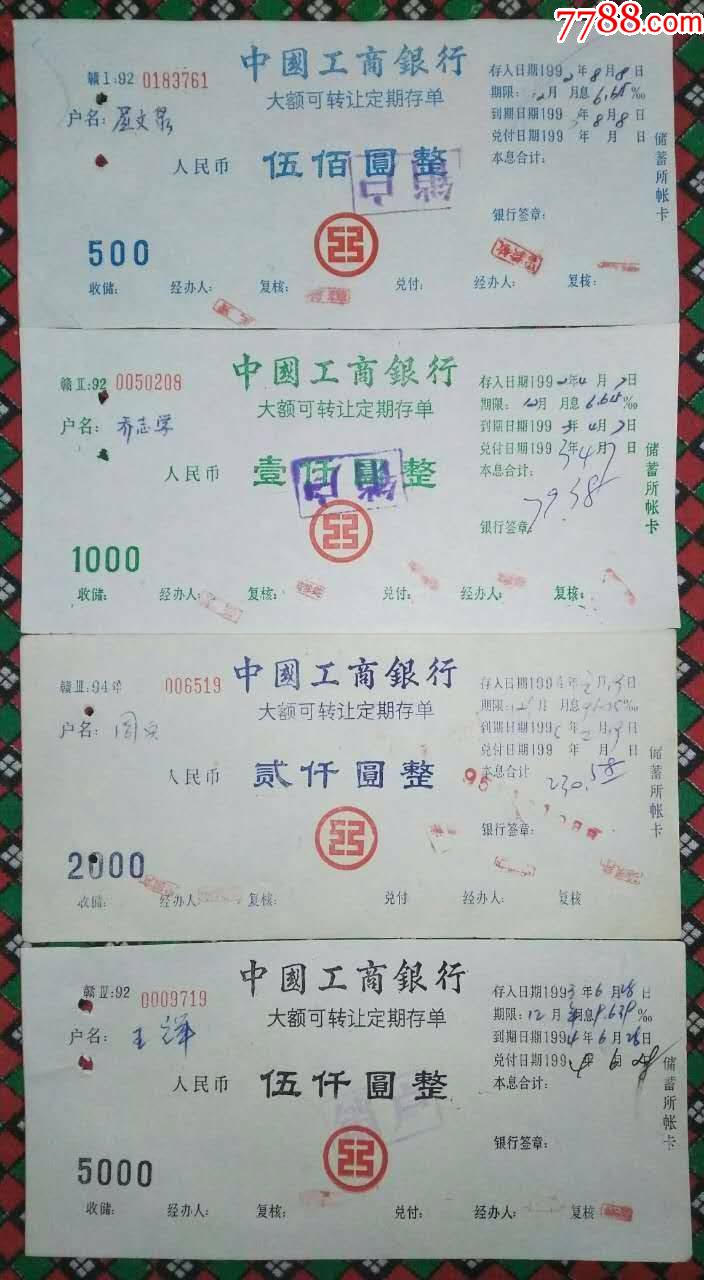 7788.com
中國工商銀行
赣Ⅰ:92 0183761
大额可转让定期存单
存入日期1992年8月8日
期限: 12月 月息6.65‰
到期日期1993年8月8日
兑付日期199 年 月 日
户名:
人民币 伍佰圆整
本息合计:
储蓄所帐卡
银行签章:
销户
500
收储: 经办人: 复核: 兑付: 经办人: 复核:
中國工商銀行
赣Ⅱ:92 0050208
大额可转让定期存单
存入日期1992年4月7日
期限: 12月 月息6.65‰
到期日期1993年4月7日
兑付日期1993年4月7日
户名: 乔志学
人民币 壹仟圆整
本息合计:
79.38
储蓄所帐卡
银行签章:
销户
1000
收储: 经办人: 复核: 兑付: 经办人: 复核:
中國工商銀行
赣Ⅲ:94年 006519
大额可转让定期存单
存入日期1994年2月19日
期限: 月 月息 ‰
到期日期199 年2月19日
兑付日期199 年 月 日
户名: 周
人民币 贰仟圆整
本息合计
230.58
储蓄所帐卡
银行签章:
2000
收储: 经办人 复核: 兑付 经办人: 复核
中國工商銀行
赣Ⅳ:92 0009719
大额可转让定期存单
存入日期1993年6月28日
期限: 12月 月息9.639‰
到期日期1994年6月28日
兑付日期1994年6月28日
户名: 王洋
人民币 伍仟圆整
本息合计:
储蓄所帐卡
银行签章:
5000
收储: 经办人: 复核: 兑付: 经办人: 复核